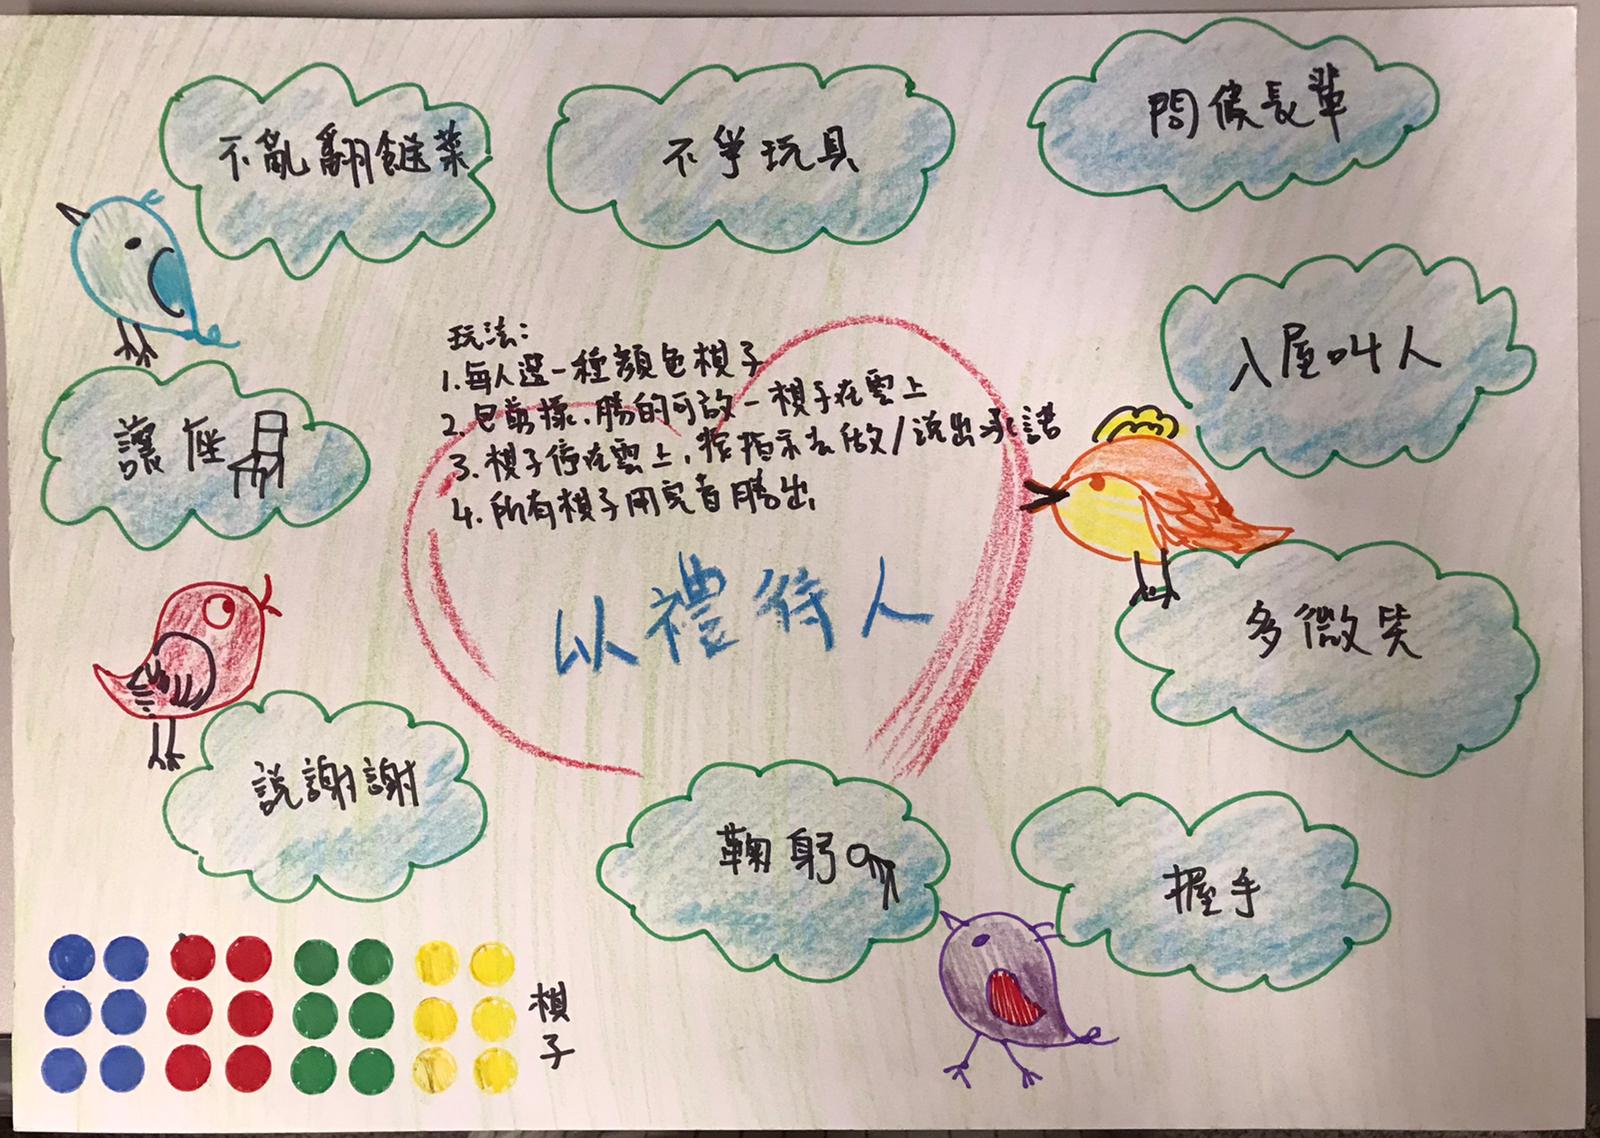 不亂翻餸菜
不爭玩具
問候長輩
入屋叫人
玩法:
1.每人選一種顏色棋子
2.包剪揼,勝的可放一棋子在雲上
3.棋子停在雲上,按指示去做/說出承諾
4.所有棋子用完者勝出
讓座
以禮待人
多微笑
說謝謝
鞠躬
握手
棋子